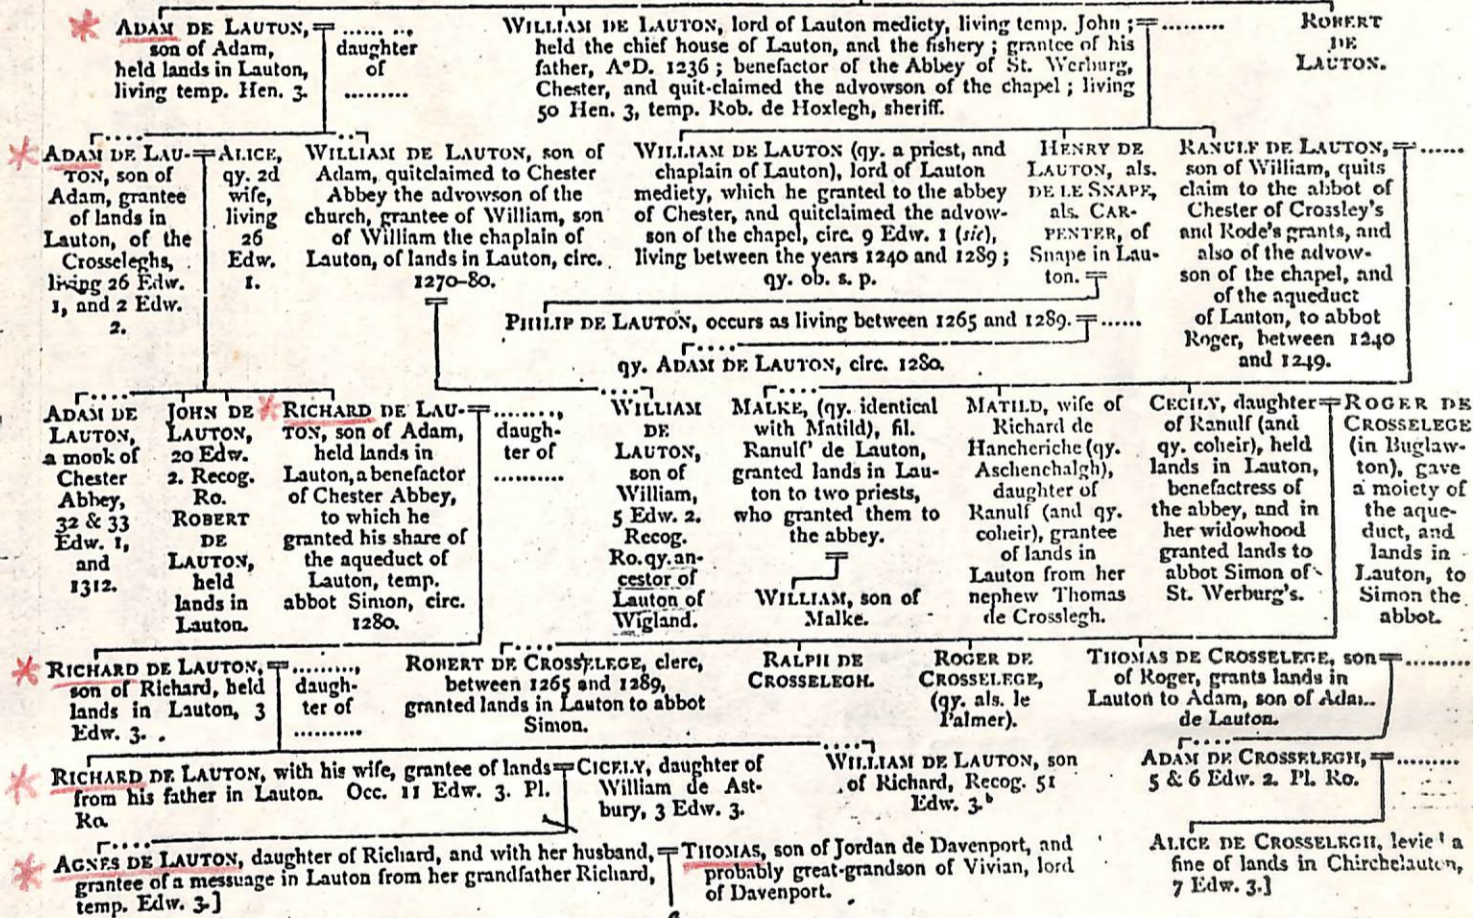 ADAM DE LAUTON,
son of Adam,
held lands in Lauton,
living temp. Hen. 3.
...... ..,
daughter
of
.........
WILLIAM DE LAUTON, lord of Lauton mediety, living temp. John ;
held the chief house of Lauton, and the fishery ; grantee of his
father, A°D. 1236 ; benefactor of the Abbey of St. Werburg,
Chester, and quit-claimed the advowson of the chapel ; living
50 Hen. 3, temp. Rob. de Hoxlegh, sheriff.
.........
ROBERT
DE
LAUTON.
ADAM DE LAU-
TON, son of
Adam, grantee
of lands in
Lauton, of the
Crosseleghs,
living 26 Edw.
1, and 2 Edw.
2.
ALICE,
qy. 2d
wife,
living
26
Edw.
1.
WILLIAM DE LAUTON, son of
Adam, quitclaimed to Chester
Abbey the advowson of the
church, grantee of William, son
of William the chaplain of
Lauton, of lands in Lauton, circ.
1270-80.
WILLIAM DE LAUTON (qy. a priest, and
chaplain of Lauton), lord of Lauton
mediety, which he granted to the abbey
of Chester, and quitclaimed the advow-
son of the chapel, circ. 9 Edw. 1 (sic),
living between the years 1240 and 1289 ;
qy. ob. s. p.
HENRY DE
LAUTON, als.
DE LE SNAPE,
als. CAR-
PENTER, of
Snape in Lau-
ton.
RANULF DE LAUTON,
son of William, quits
claim to the abbot of
Chester of Crossley's
and Rode's grants, and
also of the advow-
son of the chapel, and
of the aqueduct
of Lauton, to abbot
Roger, between 1240
and 1249.
......
PHILIP DE LAUTON, occurs as living between 1265 and 1289.
......
qy. ADAM DE LAUTON, circ. 1280.
ADAM DE
LAUTON,
a monk of
Chester
Abbey,
32 & 33
Edw. 1,
and
1312.
JOHN DE
LAUTON,
20 Edw.
2. Recog.
Ro.
ROBERT
DE
LAUTON,
held
lands in
Lauton.
RICHARD DE LAU-
TON, son of Adam,
held lands in
Lauton, a benefactor
of Chester Abbey,
to which he
granted his share of
the aqueduct of
Lauton, temp.
abbot Simon, circ.
1280.
........,
daugh-
ter of
..........
WILLIAM
DE
LAUTON,
son of
William,
5 Edw. 2.
Recog.
Ro. qy. an-
cestor of
Lauton of
Wigland.
MALKE, (qy. identical
with Matild), fil.
Ranulf' de Lauton,
granted lands in Lau-
ton to two priests,
who granted them to
the abbey.
WILLIAM, son of
Malke.
MATILD, wife of
Richard de
Hancheriche (qy.
Aschenchalgh),
daughter of
Ranulf (and qy.
coheir), grantee
of lands in
Lauton from her
nephew Thomas
de Crosslegh.
CECILY, daughter
of Ranulf (and
qy. coheir), held
lands in Lauton,
benefactress of
the abbey, and in
her widowhood
granted lands to
abbot Simon of
St. Werburg's.
ROGER DE
CROSSELEGE
(in Buglaw-
ton), gave
a moiety of
the aque-
duct, and
lands in
Lauton, to
Simon the
abbot.
RICHARD DE LAUTON,
son of Richard, held
lands in Lauton, 3
Edw. 3.
.........,
daugh-
ter of
..........
ROBERT DE CROSSELEGE, clerc,
between 1265 and 1289,
granted lands in Lauton to abbot
Simon.
RALPH DE
CROSSELEGH.
ROGER DE
CROSSELEGE,
(qy. als. le
Palmer).
THOMAS DE CROSSELEGE, son
of Roger, grants lands in
Lauton to Adam, son of Ada..
de Lauton.
.........
RICHARD DE LAUTON, with his wife, grantee of lands
from his father in Lauton. Occ. 11 Edw. 3. Pl.
Ro.
CICELY, daughter of
William de Ast-
bury, 3 Edw. 3.
WILLIAM DE LAUTON, son
of Richard, Recog. 51
Edw. 3.b
ADAM DE CROSSELEGH,
5 & 6 Edw. 2. Pl. Ro.
.........
AGNES DE LAUTON, daughter of Richard, and with her husband,
grantee of a message in Lauton from her grandfather Richard,
temp. Edw. 3.]
THOMAS, son of Jordan de Davenport, and
probably great-grandson of Vivian, lord
of Davenport.
ALICE DE CROSSELEGH, levie' a
fine of lands in Chirchelauton,
7 Edw. 3.]